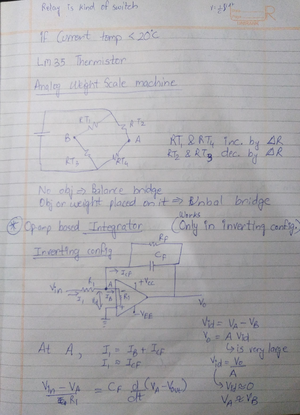 Relay is kind of switch
If Current temp ≤ 20°C
LM35 Thermistor
Analog Weight Scale machine
RT1
RT2
B
A
RT3
RT4
RT1 & RT4 inc. by ΔR
RT2 & RT3 dec. by ΔR
No obj ⇒ Balance bridge
Obj or weight placed on it ⇒ Unbal bridge
Works
* Opamp based Integrator (Only in inverting config.
Inverting config
RF
CF
ICF
+VCC
Vin
R1
I1
A
IB
B
-VEE
Vo
Vid = VA - VB
Vo = A Vid
↳ is very large
Vid = Vo/A
↳ Vid ≈ 0
VA ≈ VB
At A, I1 = IB + ICF
I1 = ICF
Vin - VA / R1 = CF d/dt (VA - Vout)